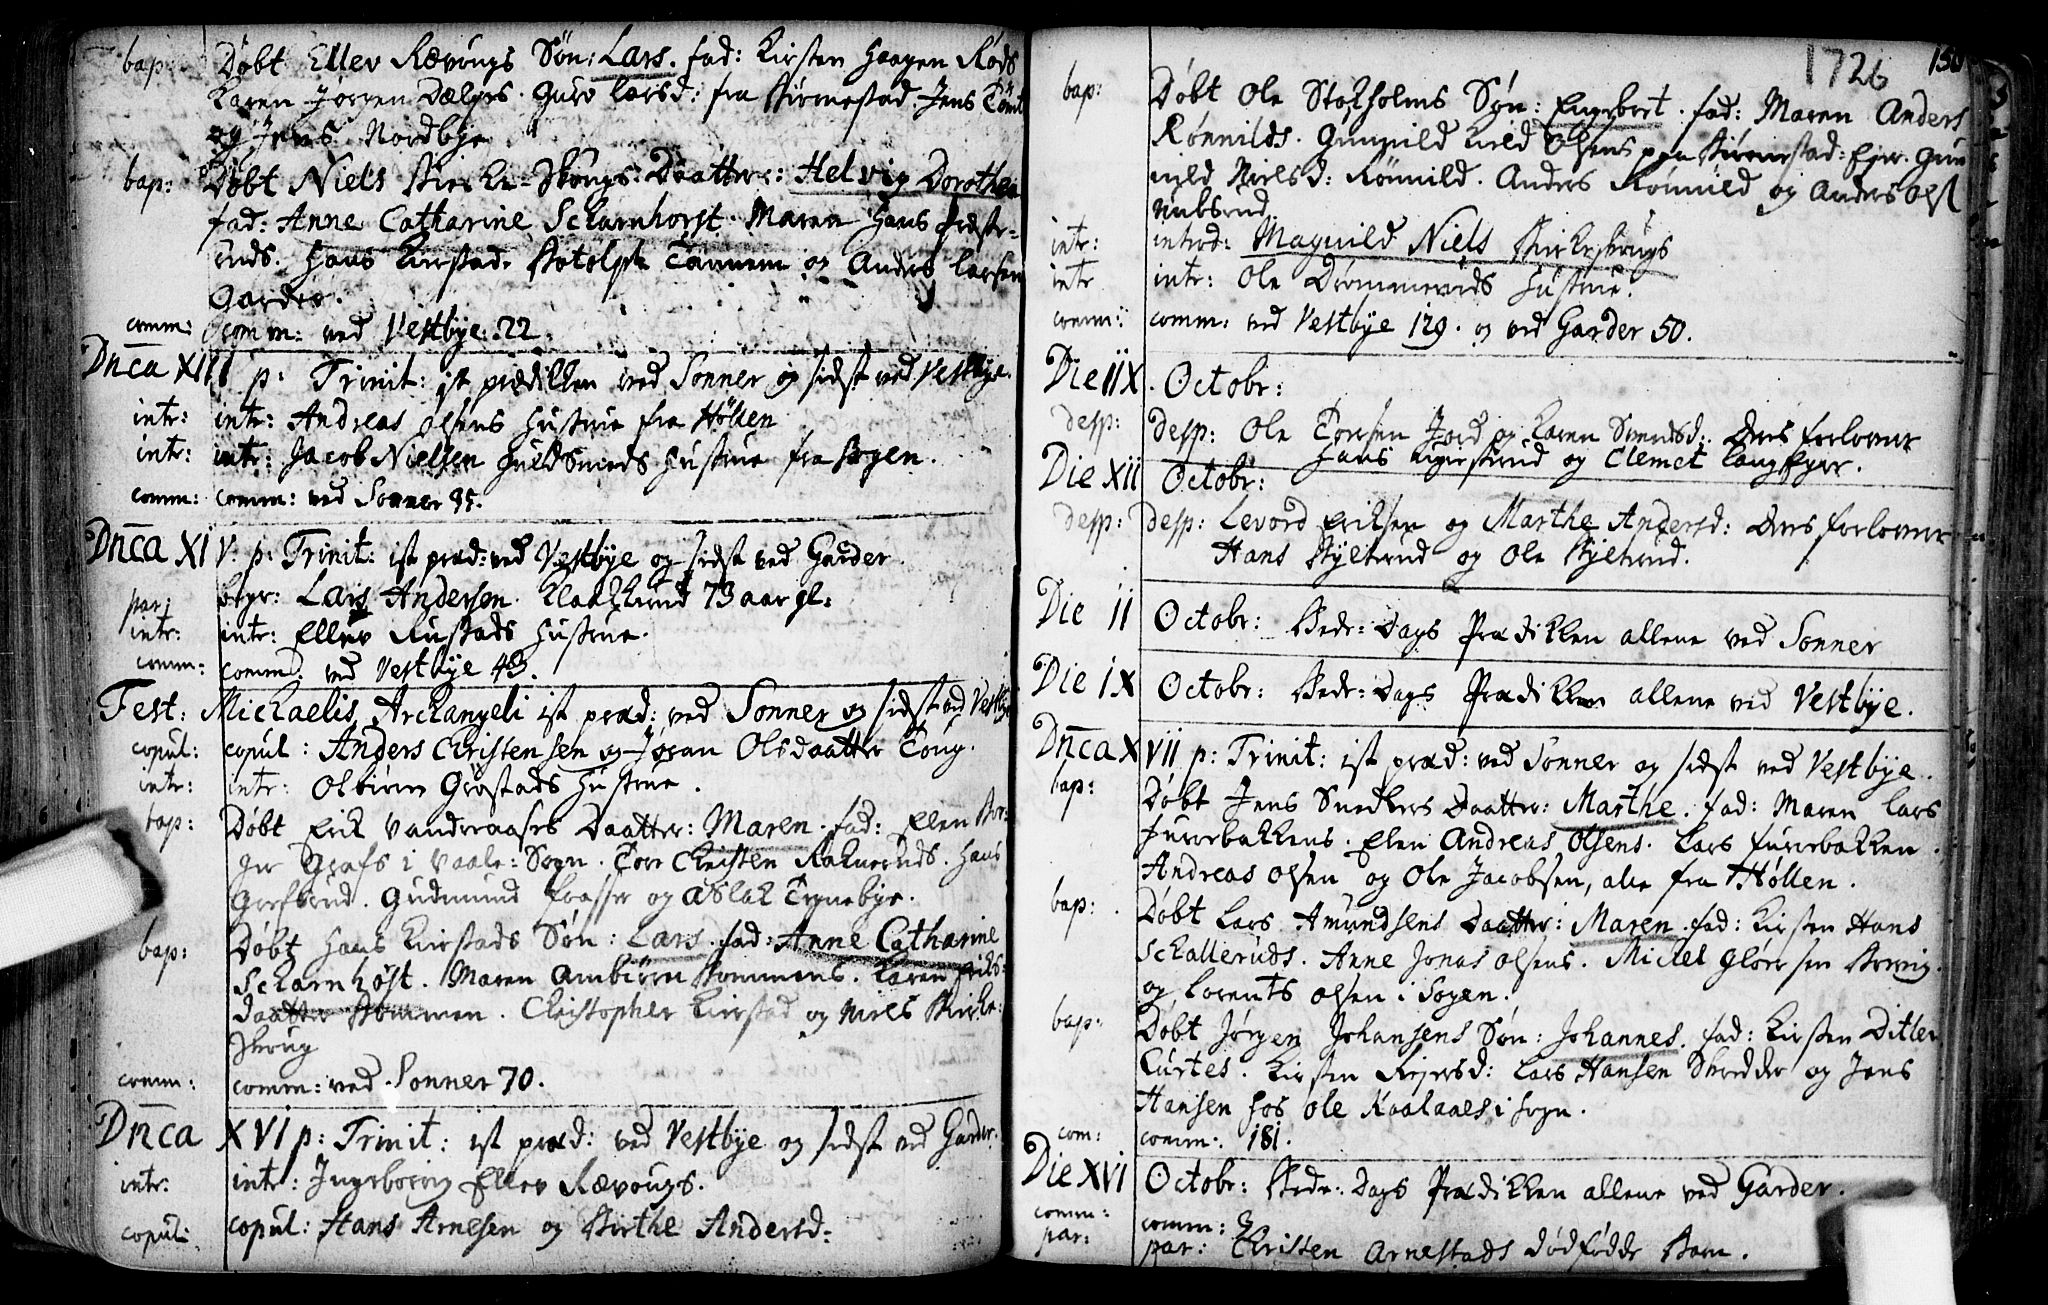 bap: Døbt Ellev Rævougs Søn: Lars. fad: Kirsten Haagen Røds
Karen Jørgen Dælyes. Guro Larsd: fra Kirnestad. Jens
og Jens Nordbye
bap: Døbt Niels Kirke-Skougs Daatter: Helvig Dorothea
fad: Anne Catharine Scharnhorst. Maren Hans
Hans Kirstad. Botolph Tannem og Anders Larsen
Garder.
comm: comm: ved Vestbye. 22.
Dnca XIII p: Trinit: ist prædikken ved Sonner og sidst ved Vestbye.
intr: intr: Andreas Olsens Hustrue fra Hølen
intr: intr: Jacob Nielsen Guldsmeds Hustrue fra Sogen.
comm: comm: ved Sonner 35.
Dnca XIV. p: Trinit: ist præd: ved Vestbye og sidst ved Garder.
par: begr: Lars Andersen Kladkerud 73 aar gl:
intr: intr: Ellev Rustads Hustrue.
comm: comm: ved Vestbye 43.
Fest: Michaelis Archangeli ist præd: ved Sonner og sidst ved Vestbye
copul: copul: Anders Christensen og Jøran Olsdaatter Toug.
intr: intr: Olbiørn Grøstads Hustrue.
bap: Døbt Erik Vanderaases Daatter: Maren. fad: Elen Bør-
ger Grafs i Vaale: Sogn. Tore Christen Rakneruds. Hans
Grefsrud. Gudmund Fraaser og Aslak Tegnebye.
bap: Døbt Hans Kirstads Søn: Lars. fad: Anne Catharine
Scharnhøst. Maren Ambiørn Kommens. Karen Eriks-
daatter Kommen. Christopher Kirstad og Niels Kirke-
Skoug
comm: comm: ved Sonner 70.
Dnca XVI p: Trinit: ist præd: ved Vestbye og sidst ved Garder.
intr: intr: Ingeborrig Ellev Rævougs.
copul: copul: Hans Arnesen og Birthe Andersd:
1726 150
bap: Døbt Ole Stokholms Søn: Engebret. fad: Maren Anders
Rønnilds. Gunnild Kield Olsens paa Kirnestad: Eyer. Gun
nild Nielsd: Rønnild. Anders Rønnild og Anders Olst
rubsrud.
intr: introd: Magnild Niels Kirkeskougs
intr intr: Ole Drømmevids Hustrue.
comm: comm: ved Vestbye 129. og ved Garder 50.
Die IIX. Octobr:
desp: desp: Ole Torsen Jord og Karen Svendsd: Deres forlover
Hans og Clemet Lang Eyer.
Die XII Octobr:
desp: desp: Levord Eriksen og Marthe Andersd: Deres forlover
Hans Kyltrud og Ole Kyltrud.
Die II Octobr: Bede-Dags Prædikken allene ved Sonner
Die IX Octobr: Bede-Dags Prædikken allene ved Vestbye.
Dnca XVII p: Trinit: ist præd: ved Sonner og sidst ved Vestbye.
bap: Døbt Jens Snedkers Daatter: Marthe. fad: Maren Lars
Furrebakkens. Elen Andreas Olsens. Lars Furrebakken.
Andreas Olsen og Ole Jacobsen, alle fra Hølen.
bap: Døbt Lars Amundsens Daatter: Maren. fad: Kirsten Hans
Schalleruds. Anne Jonas Olsens. Mickel Glørsen Krwig.
og Lorents Olsen i Sogen.
bap: Døbt Jørgen Johansens Søn: Johannes. fad: Kirsten Ditler
Curtes. Kirsten Rejersd: Lars Hansen Skredder og Jens
Hansen hos Ole Kaalaaes i sogn.
com: comm: 181.
Die XVI Octobr: Bede-Dags Prædikken allene ved Garder.
comm: comm: 3
par: par: Christen Arnestads Dødfødde Barn.